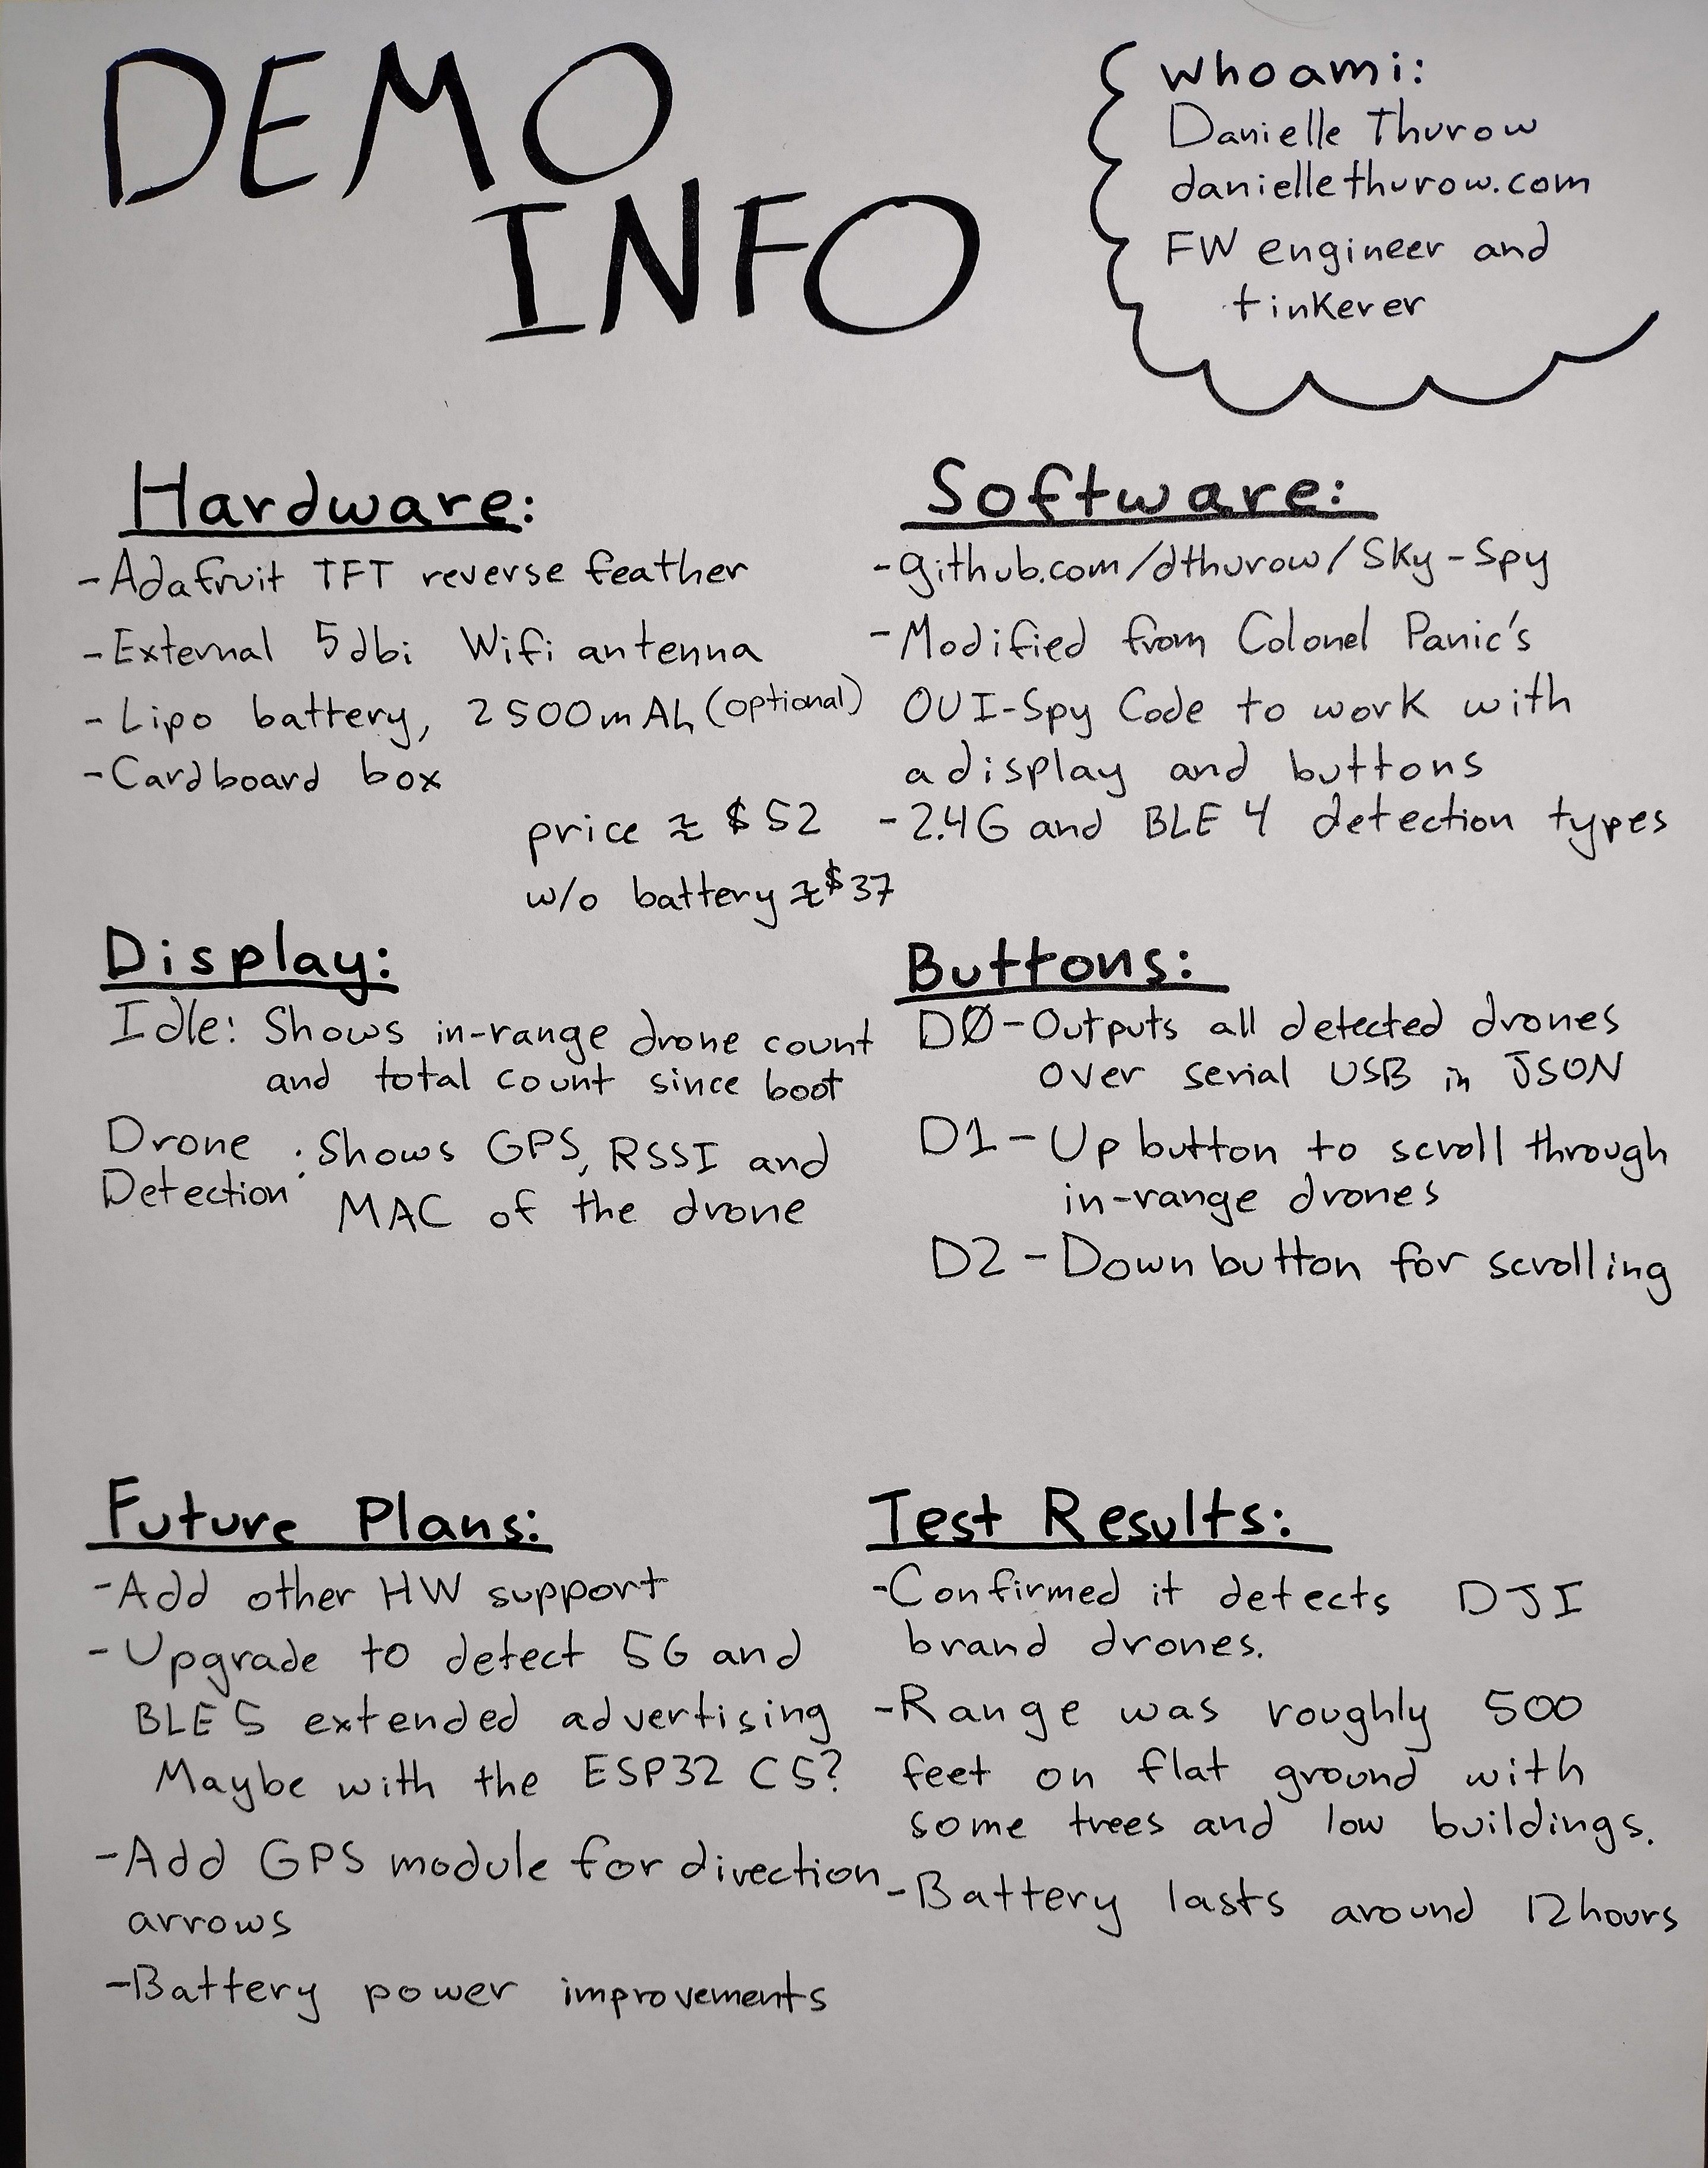 DEMO
INFO
whoami:
Danielle Thurow
daniellethurow.com
FW engineer and
tinkerer
Hardware:
-Adafruit TFT reverse feather
-External 5dbi Wifi antenna
-Lipo battery, 2500mAh (optional)
-Cardboard box
price ≈ $52
w/o battery ≈ $37
Software:
-github.com/dthurow/Sky-Spy
-Modified from Colonel Panic's
OUI-Spy Code to work with
a display and buttons
-2.4G and BLE 4 detection types
Display:
Idle: Shows in-range drone count
and total count since boot
Drone
Detection : Shows GPS, RSSI and
MAC of the drone
Buttons:
DØ-Outputs all detected drones
over serial USB in JSON
D1-Up button to scroll through
in-range drones
D2-Down button for scrolling
Future Plans:
-Add other HW support
-Upgrade to detect 5G and
BLE 5 extended advertising
Maybe with the ESP32 C5?
-Add GPS module for direction
arrows
-Battery power improvements
Test Results:
-Confirmed it detects DJI
brand drones.
-Range was roughly 500
feet on flat ground with
some trees and low buildings.
-Battery lasts around 12hours